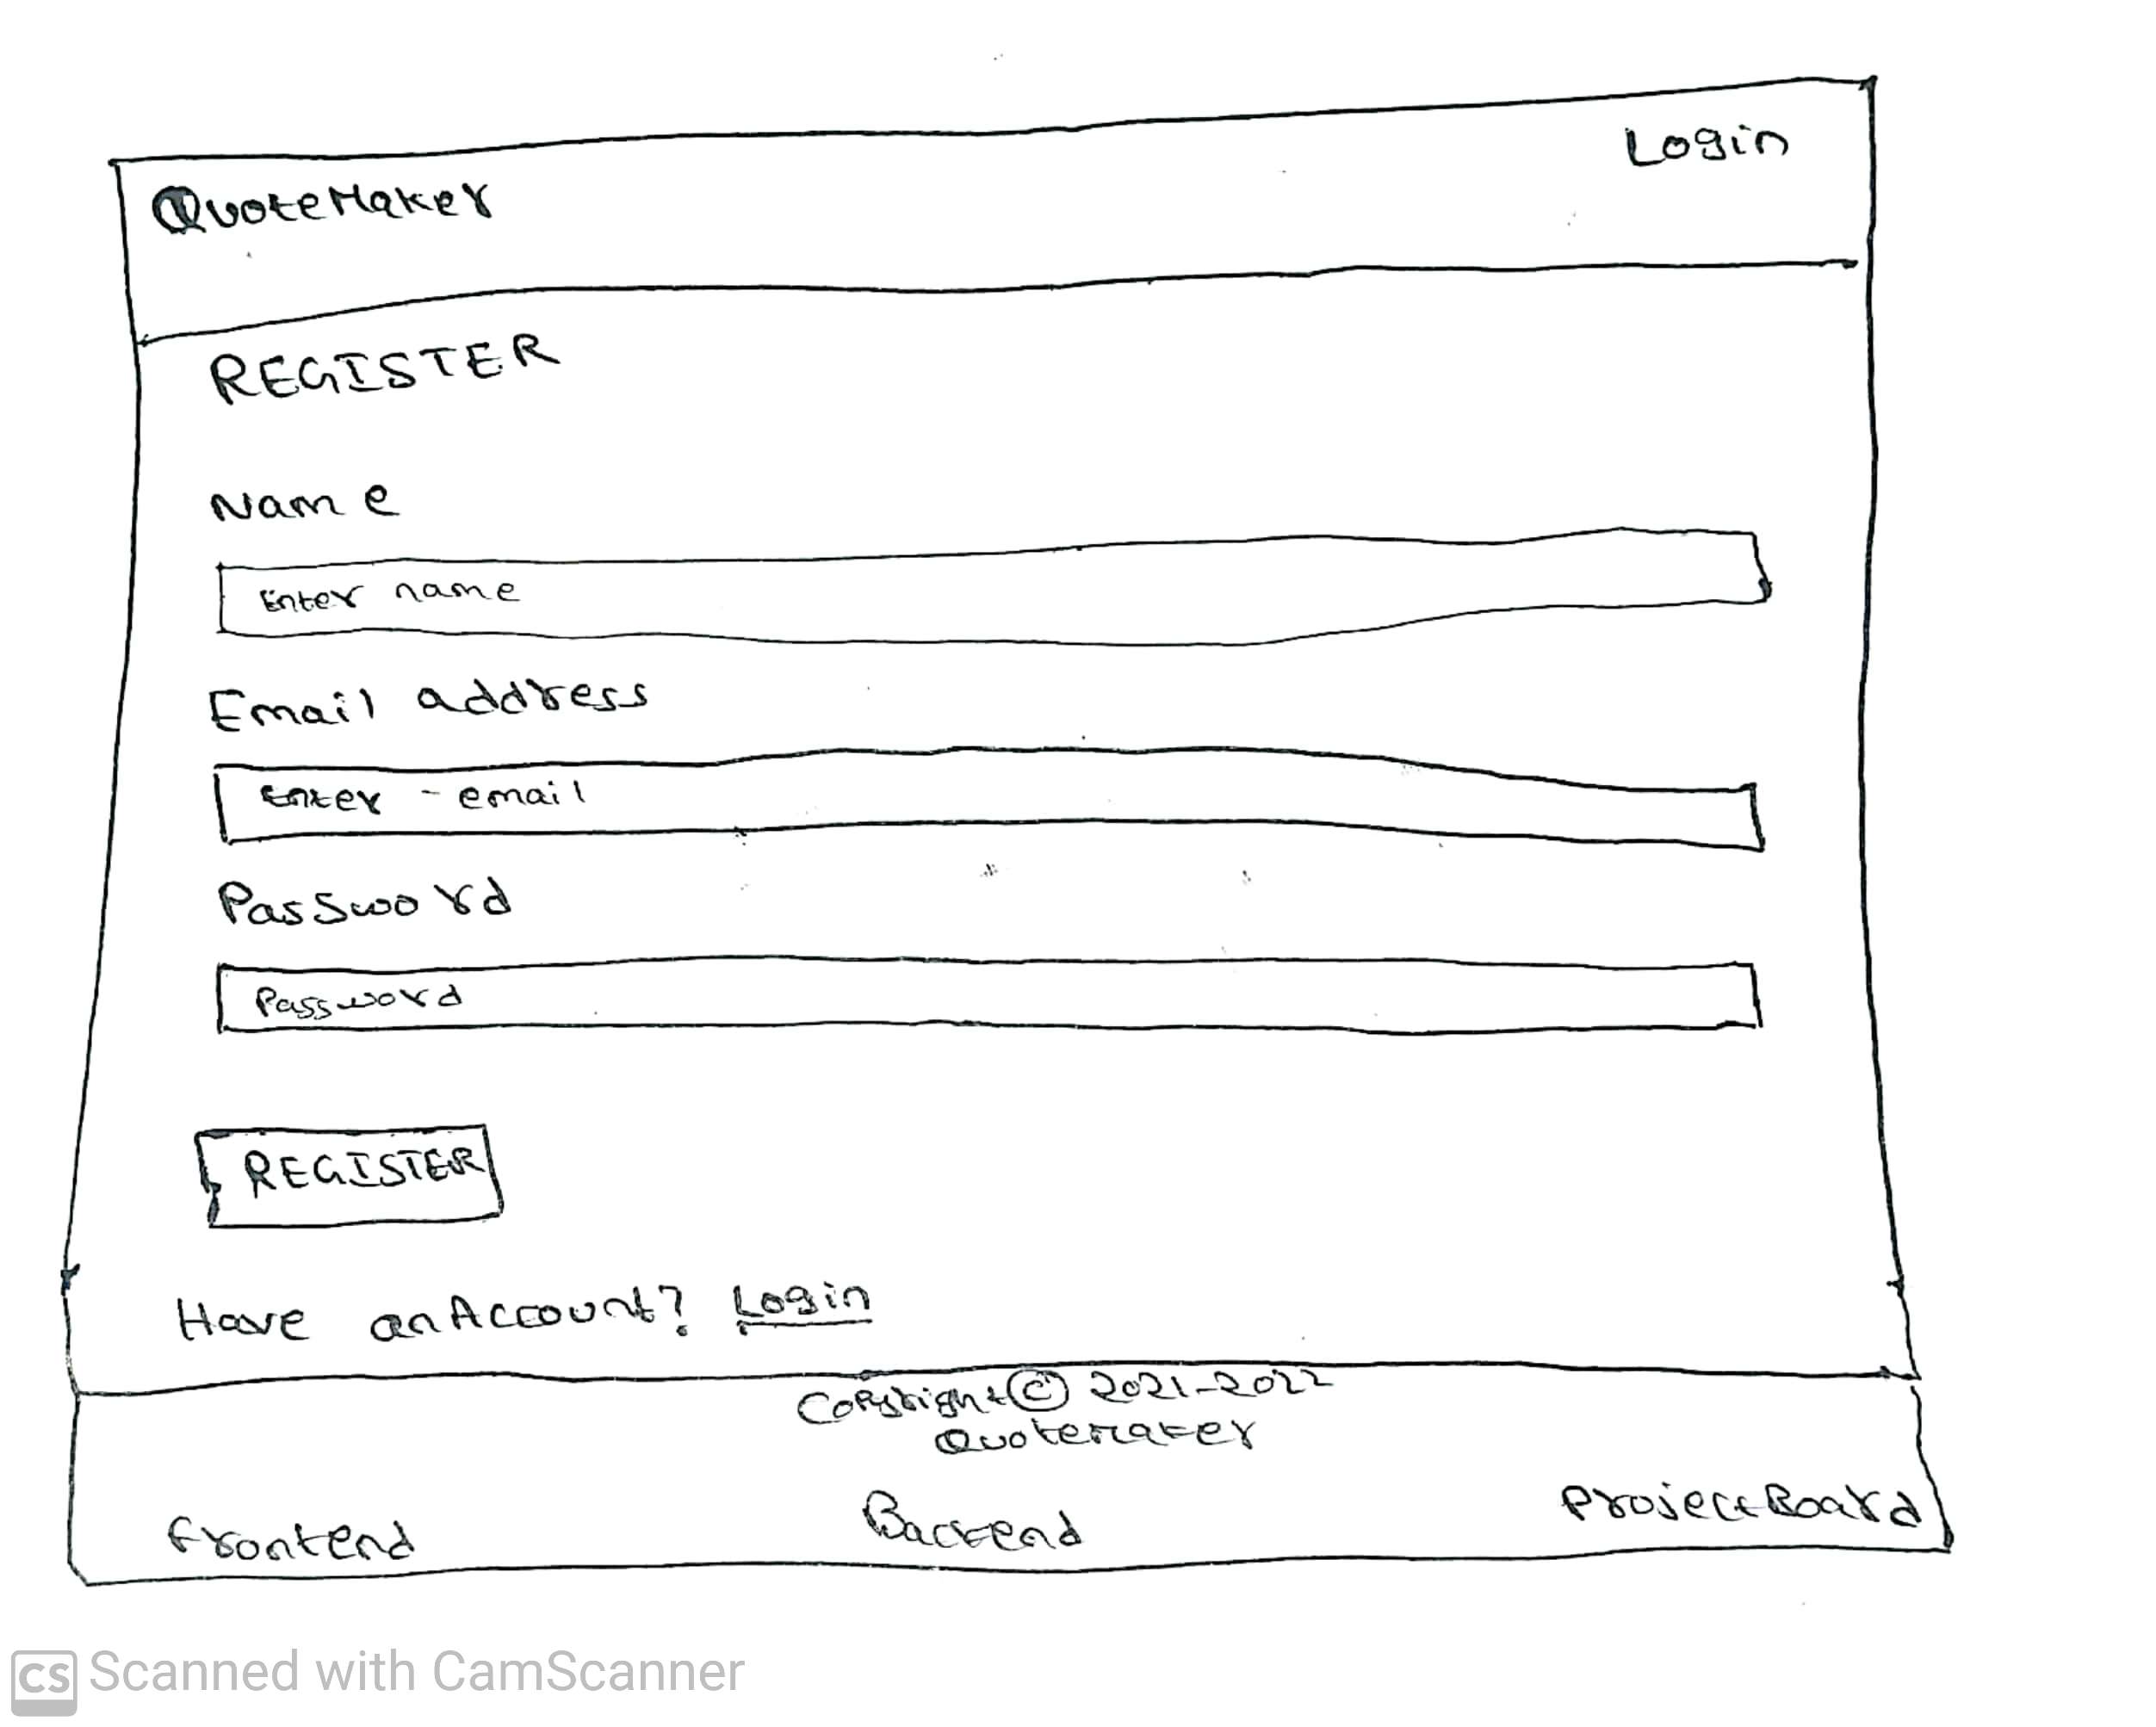 QuoteMaker Login
REGISTER
Name
Enter name
Email address
Enter - email
Password
Password
REGISTER
Have an Account? Login
Copyright © 2021-2022
QuoteMaker
Frontend Backend ProjectBoard
CS Scanned with CamScanner